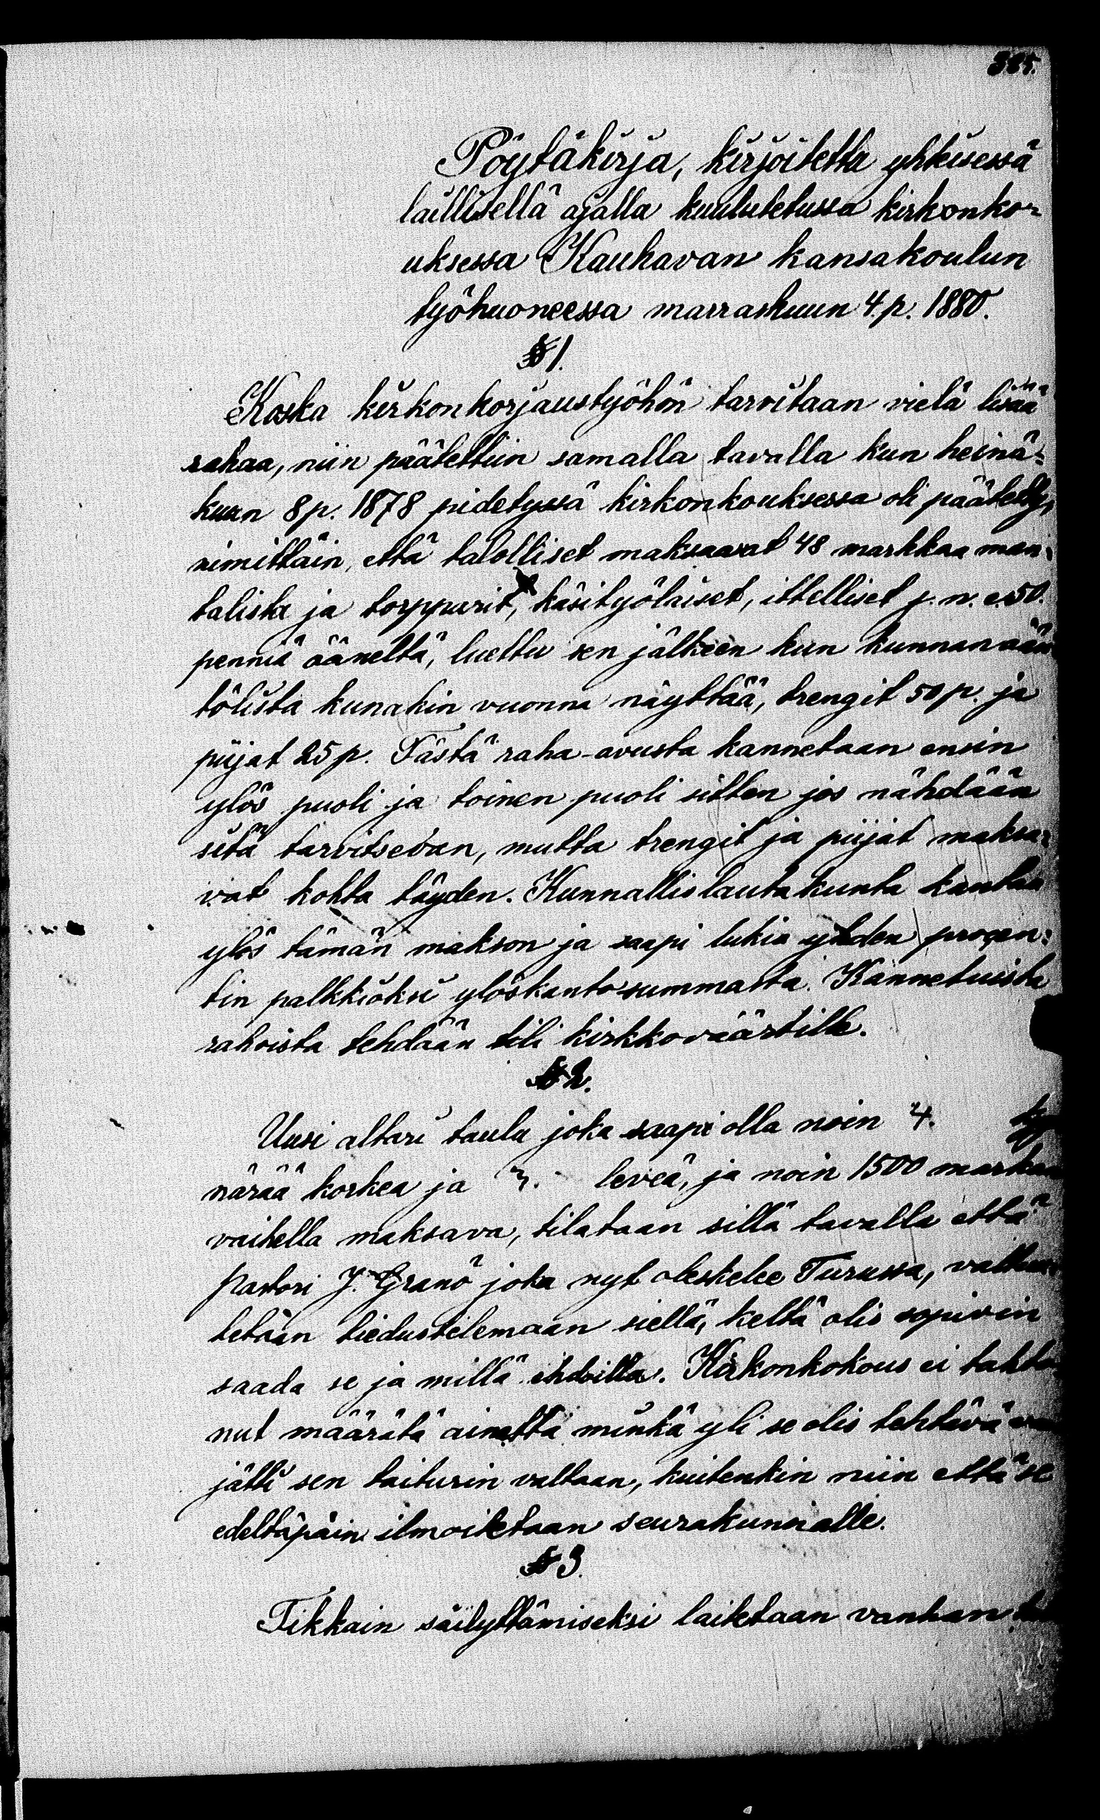 385.
Pöytäkirja, kirjoitettu yhteisessä
laillisella ajalla kuulutetussa kirkonko-
uksessa Kauhavan kansakoulun
työhuoneessa marraskuun 4 p. 1880.
§ 1.
Koska kirkonkorjaustyöhön tarvitaan vielä lisää
rahaa, niin päätettiin samalla tavalla kun heinä-
kuun 8 p. 1878 pidetyssä kirkonkouksessa oli päätetty,
nimittäin, että talolliset maksaavat 48 markkaa man-
talista ja torpparit, käsityölaiset, ittelliset j. n. e. 50.
penniä ääneltä, luettu sen jälkeen kun kunnan ään
tölista kunakin vuonna näyttää, trengit 50 p. ja
piijat 25 p. Tästä raha-avusta kannetaan ensin
ylös puoli ja toinen puoli sitten jos nähdään
sitä tarvitsevan, mutta trengit ja piijat maksa-
vat kohta täyden. Kunnallislautakunta kantaa
ylös tämän makson ja saapi lukia yhden procen-
tin palkkioksi ylöskantosummasta. Kannetuista
rahoista tehdään tili kirkkoväärtille.
§ 2.
Uusi altari taulu joka saapi olla noin 4.
närää korkea ja 3. leveä, ja noin 1500 markaa
vaihella maksava, tilataan sillä tavalla että
Pastori J. Granö joka nyt oleskelee Turussa,
tetaan tiedustelemaan siellä, keltä olis sopivin
saada se ja millä ehdoilla. Kirkonkokous ei tahto
nut määrätä ainetta minkä yli se olis tehtävä
jätti sen taiturin valtaan, kuitenkin niin että se
edeltäpäin ilmoitetaan seurakunnalle.
§ 3.
Tikkain säilyttämiseksi laitetaan vanhan